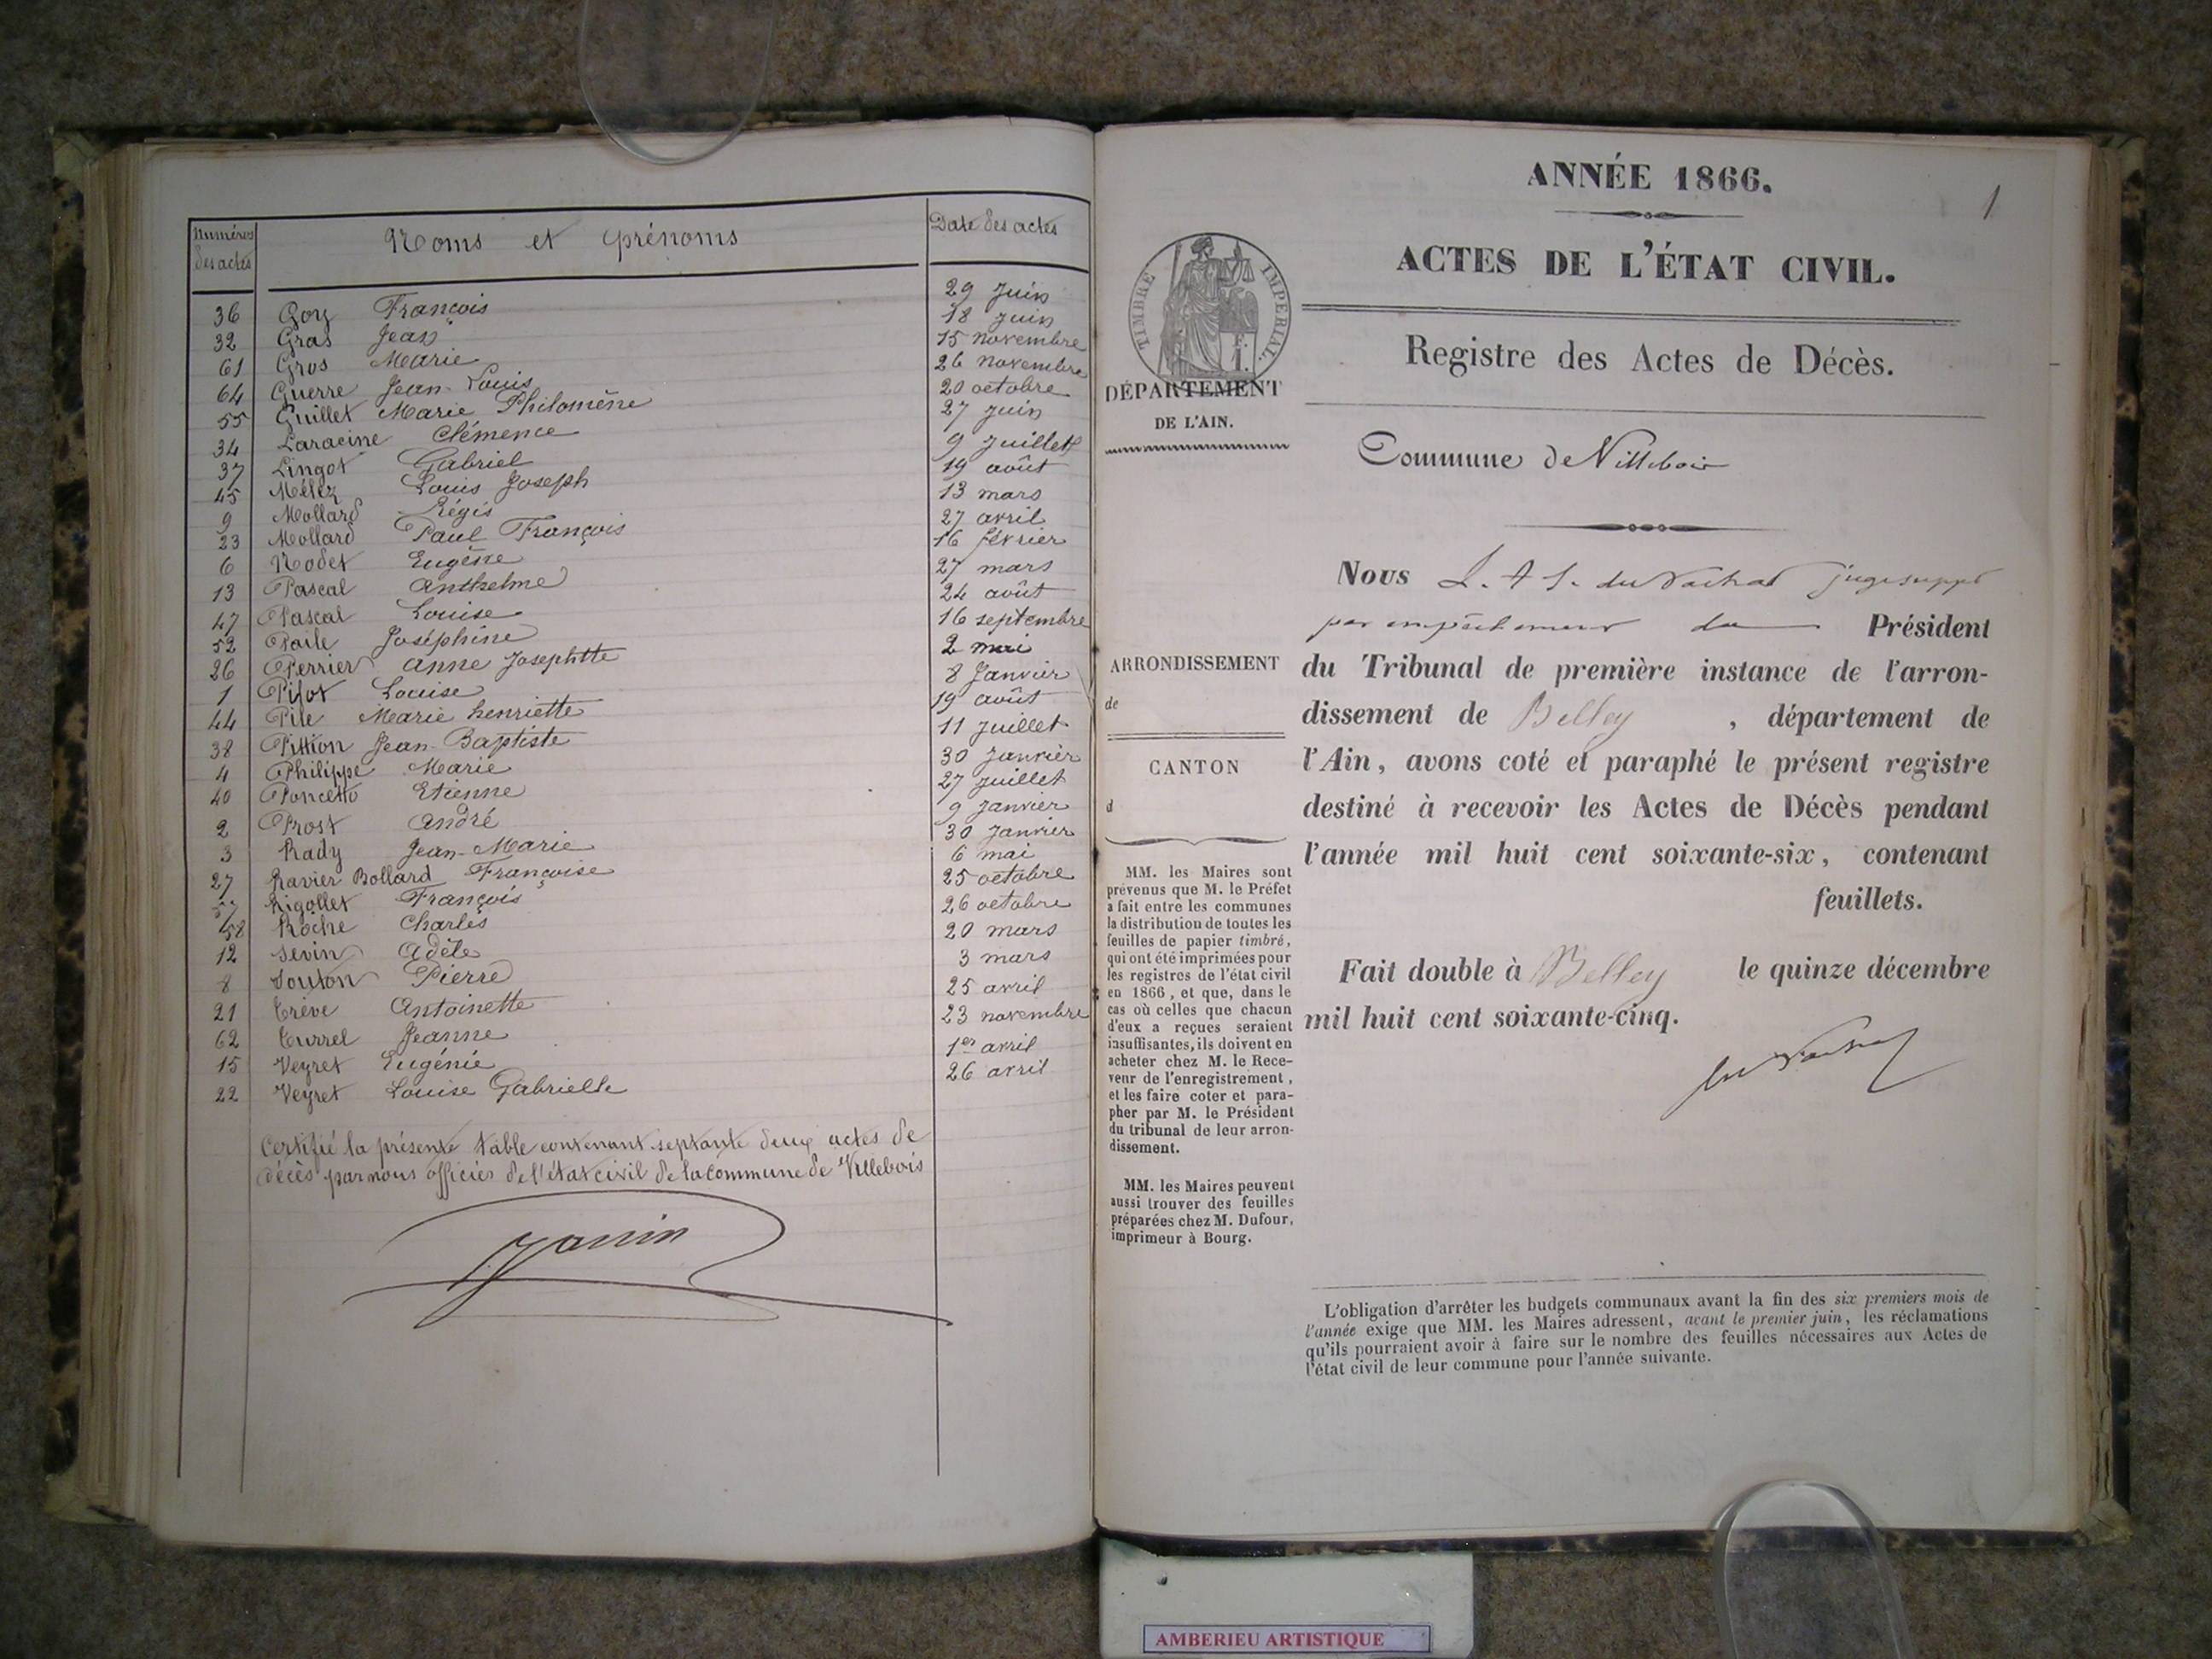 Numéros des actes | Noms et prénoms | Date des actes
36 Goy François 29 Juin
32 Gras Jean 18 Juin
61 Gros Marie 15 novembre
64 Guerre Jean-Louis 26 novembre
55 Guillet Marie Philomène 20 octobre
34 Laracine Clémence 27 Juin
37 Lingot Gabriel 9 Juillet
45 Mélez Louis Joseph 19 août
9 Mollard Régis 13 mars
23 Mollard Paul François 27 avril
6 Nodet Eugène 16 février
13 Pascal Anthelme 27 mars
47 Pascal Louise 24 août
52 Paile Joséphine 16 septembre
26 Perrier Anne Josephtte 2 mai
1 Pijot Louise 8 Janvier
44 Pile Marie henriette 19 août
38 Pittion Jean-Baptiste 11 Juillet
4 Philippe Marie 30 Janvier
40 Poncetto Etienne 27 Juillet
2 Prost André 9 Janvier
3 Rady Jean-Marie 30 Janvier
27 Ravier Bollard Françoise 6 mai
57 Rigollet François 25 octobre
58 Roche Charles 26 octobre
12 Sevin Adèle 20 mars
8 Souton Pierre 3 mars
21 Trève Antoinette 25 avril
62 Turrel Jeanne 23 novembre
15 Veyret Eugénie 1er avril
22 Veyret Louise Gabrielle 26 avril
Certifié la présente table contenant septante deux actes de
décès par nous officier de l'état civil de la commune de Villebois
Janin
ANNÉE 1866.
1
ACTES DE L'ÉTAT CIVIL.
TIMBRE IMPÉRIAL.
F.
1.
Registre des Actes de Décès.
DÉPARTEMENT
DE L'AIN.
Commune de Villebois
Nous L. A S. du Vachat juge suppt
par empêchement du Président
ARRONDISSEMENT
de
du Tribunal de première instance de l'arron-
dissement de Belley, département de
CANTON
d
l'Ain, avons coté et paraphé le présent registre
destiné à recevoir les Actes de Décès pendant
l'année mil huit cent soixante-six, contenant
feuillets.
Fait double à Belley le quinze décembre
mil huit cent soixante-cinq.
du Vachat
MM. les Maires sont
prévenus que M. le Préfet
a fait entre les communes
la distribution de toutes les
feuilles de papier timbré,
qui ont été imprimées pour
les registres de l'état civil
en 1866, et que, dans le
cas où celles que chacun
d'eux a reçues seraient
insuffisantes, ils doivent en
acheter chez M. le Rece-
veur de l'enregistrement,
et les faire coter et para-
pher par M. le Président
du tribunal de leur arron-
dissement.
MM. les Maires peuvent
aussi trouver des feuilles
préparées chez M. Dufour,
imprimeur à Bourg.
L'obligation d'arrêter les budgets communaux avant la fin des six premiers mois de
l'année exige que MM. les Maires adressent, avant le premier juin, les réclamations
qu'ils pourraient avoir à faire sur le nombre des feuilles nécessaires aux Actes de
l'état civil de leur commune pour l'année suivante.
AMBERIEU ARTISTIQUE